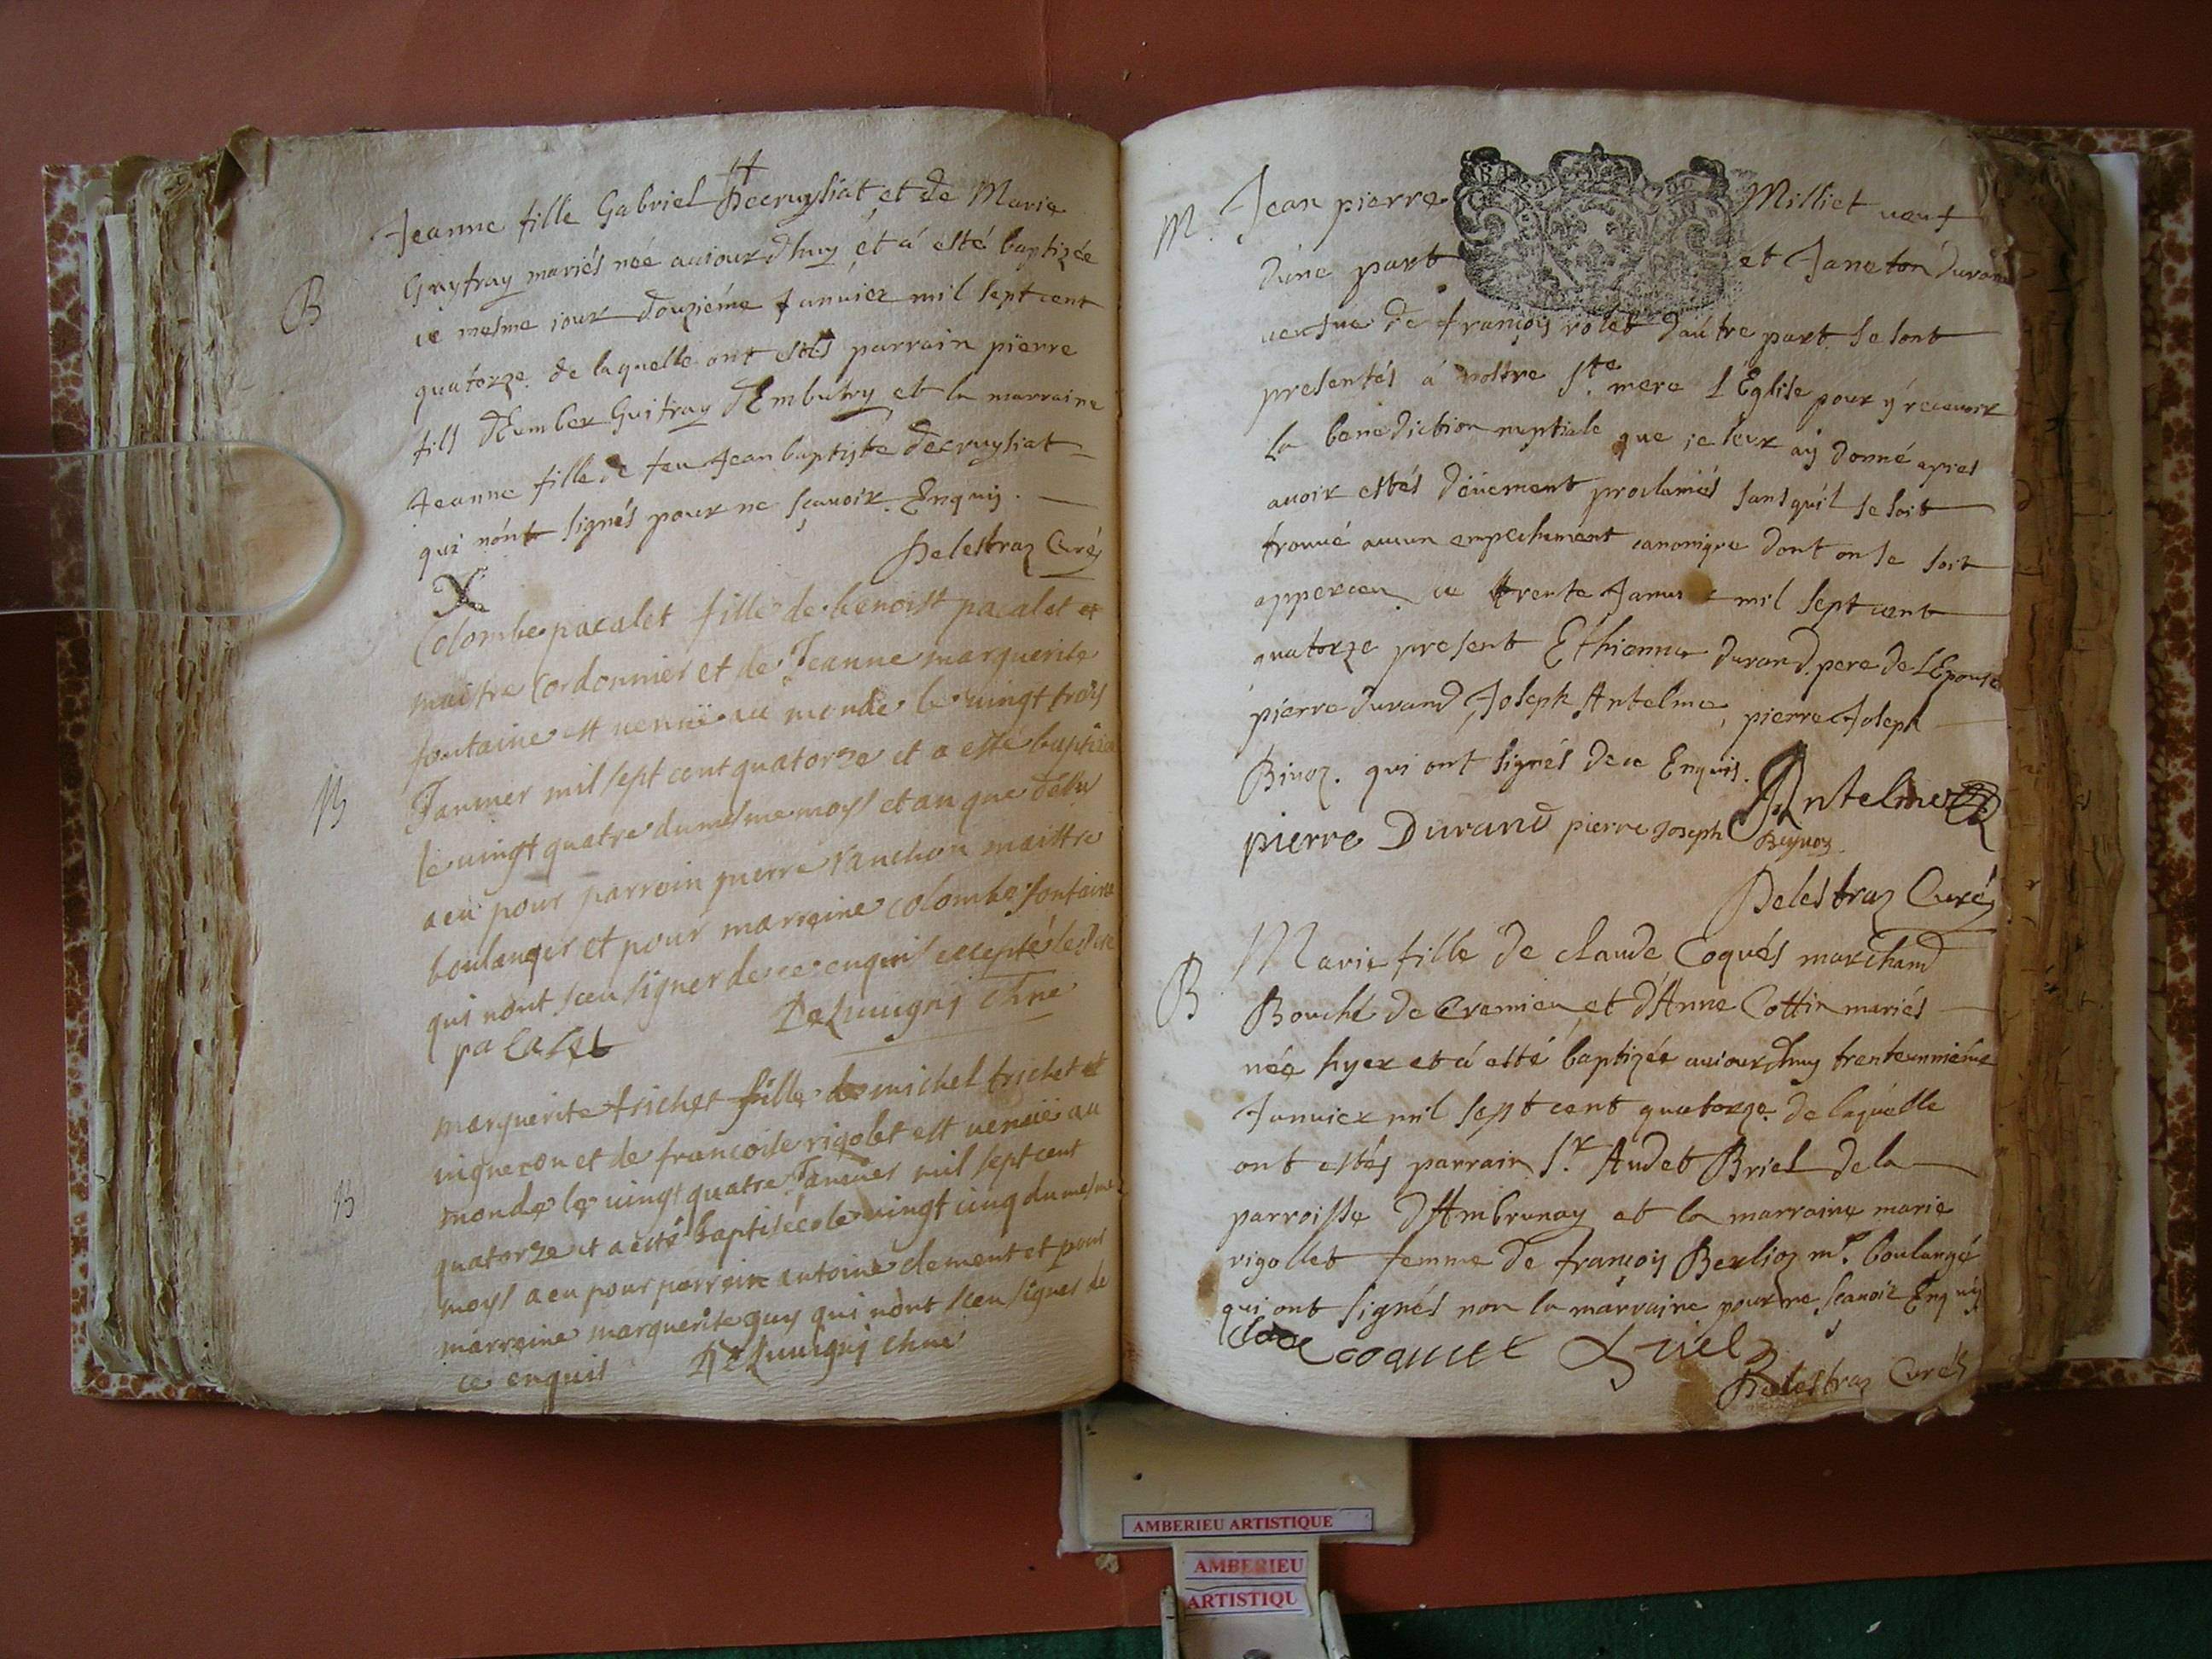 Jeanne fille Gabriel Decruysiat et de Marie
B
Guyfray mariés née auiourdhuy et á esté baptizée
ce mesme iour douziéme Januier mil sept cent
quatorze de laquelle ont estés parrain pierre
fils dEmber Guifray dEmbutry et la marraine
Jeanne fille de feu Jean baptiste decruysiat
qui nónt signés pour ne sçauoir Enquis.
Delestraz Curé
Colombe pacalet fille de benoist pacalet et
maistre Cordonnier et de Jeanne marguerite
fontaine est venuë au monde le vingt trois
B
Januier mil sept cent quatorze et a esté baptisée
le vingt quatre du mesme moys et an que dessus
a eu pour parrain pierre vauchon maistre
boulanger et pour marraine colombe fontaine
qui nont sceu signer de ce enquis excepté le pere
pacalet DeLuuigni vicaire
marguerite trichet fille de michel trichet et
vigneron et de francoise rigolet est venuë au
monde le vingt quatre Januier mil sept cent
B
quatorze et a esté baptisée le vingt cinq du mesme
moys a eu pour parrain antoine clement et pour
marraine marguerite guy qui nont sceu signer de
ce enquis DeLuuigni
M. Jean pierre Milliet veuf
dúne part et Janeton durand
veufue de françois rolet dautre part se sont
presentés á nostre Ste mere L'Église pour ÿ receuoir
la benediction nuptiale que je leur aÿ donné apres
auoir estés dûement proclamés sans quil se soit
trouué aucun empechement canonique dont on se soit
apperceu ce trente Januier mil sept cent
quatorze present Ethienne durand pere de LEpouse
pierre durand Joseph Antelme, pierre Joseph
Binoz. qui ont signés de ce Enquis.
Antelme
pierre Durand pierre Joseph Beynoz
Delestraz Curé
Marie fille de claude Coqués marchand
B
Bouché de Cremieu et d'Anne Cottin mariés
née hyer et á esté baptizée auiourdhuy trenteunniéme
Januier mil sept cent quatorze de laquelle
ont estés parrain Sr. Audet Briel de la
parroisse d'Ambrunay et la marraine marie
rigollet femme de françois Berlioz mr. boulangé
qui ont signés non la marraine pour ne scauoir Enquis
Claude Coquet Briel
Delestraz Curé
AMBERIEU ARTISTIQUE
AMBERIEU
ARTISTIQU